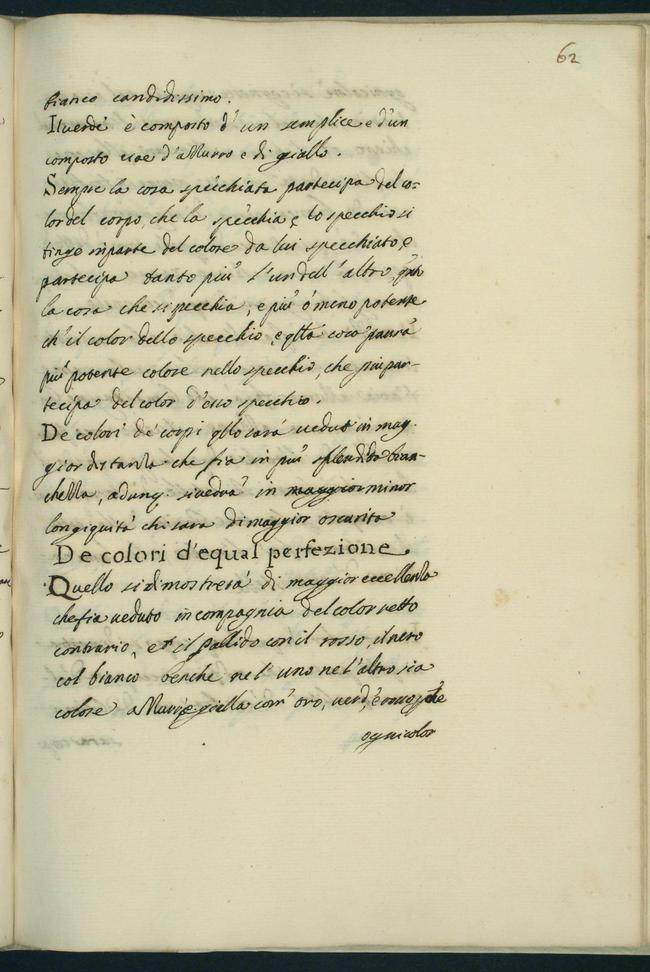 62
bianco candidissimo.
Il verde è composto d' un semplice e d'un
composto cioe d'azzurro e di giallo.
Sempre la cosa specchiata partecipa del co-
lor del corpo, che la specchia e lo specchio si
tinge in parte del colore da lui specchiato, e
partecipa tanto più l'un dell' altro,
la cosa che si specchia, e più ò meno potente
ch' il color dello specchio, e qlla cosa parrà
più potente colore nello specchio, che più par-
tecipa del color d'esso specchio.
De colori de corpi qllo sarà veduto in mag-
gior distanza che fia in più splendida bian-
chezza, adunq. si vedrà in maggior minor
longiquità chi sara di maggior oscurita
De colori d'equal perfezione
Quello si dimostrerà di maggior eccellenza
che fia veduto in compagnia del color retto
contrario, et il pallido con il rosso, il nero
col bianco benche ne l' uno ne l'altro sia
colore azzurro e gialla com' oro, verd, e rosso
ogni color